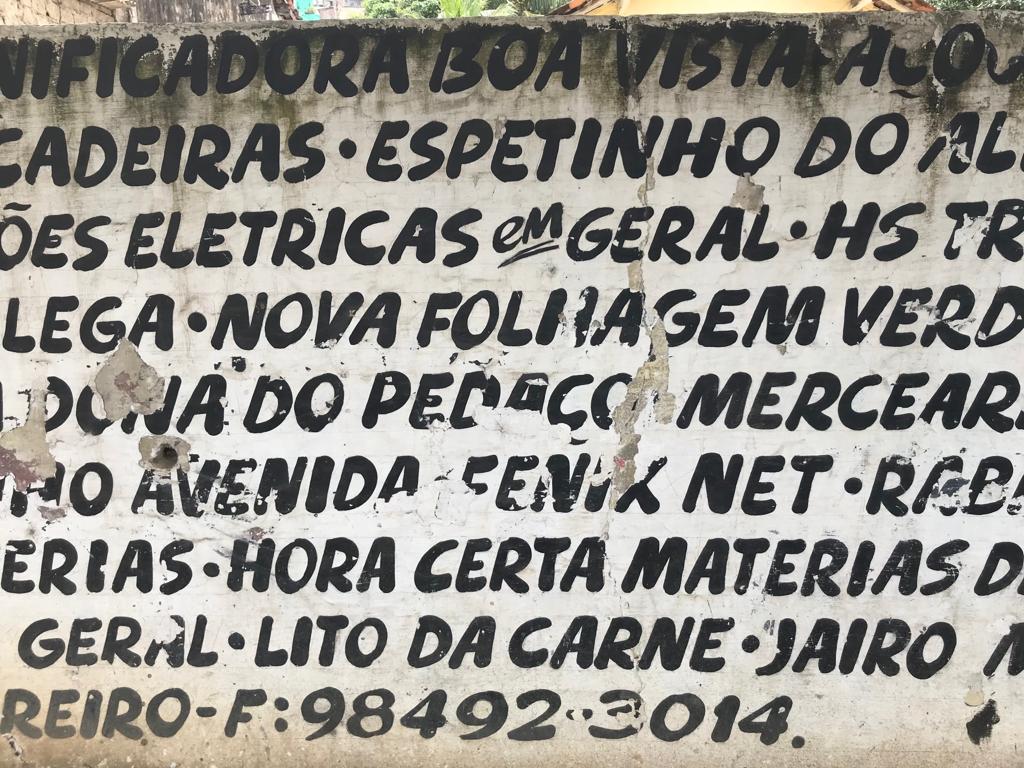 NIFICADORA BOA VISTA AÇOU
CADEIRAS • ESPETINHO DO AL
ÕES ELETRICAS em GERAL • HS TR
LEGA • NOVA FOLHAGEM VERD
DONA DO PEDAÇO MERCEAR
HO AVENIDA FENIX NET • RABE
ERIAS • HORA CERTA MATERIAS D
GERAL • LITO DA CARNE • JAIRO
REIRO - F: 98492-3014.